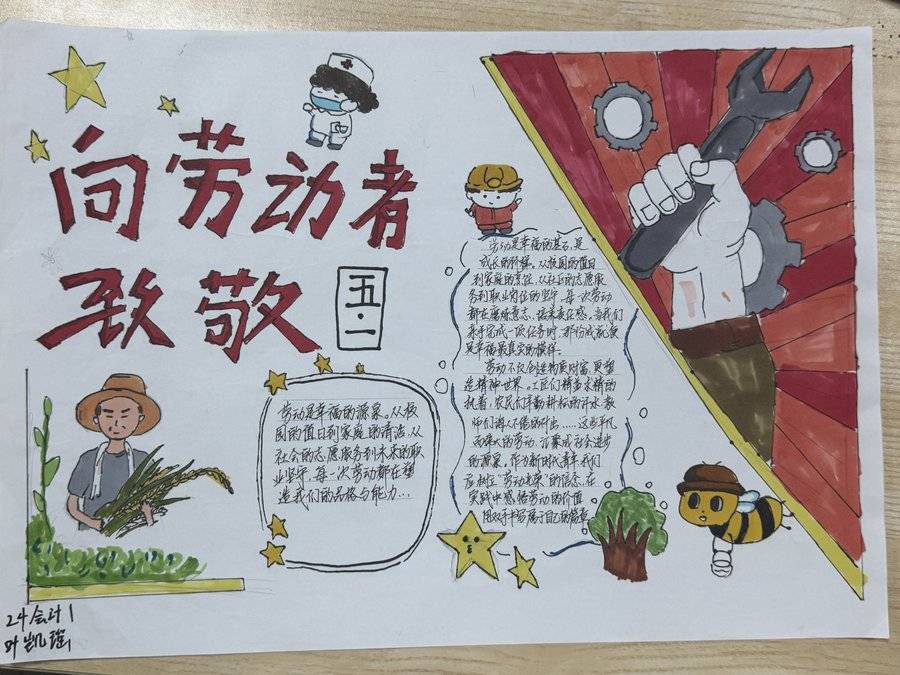 向劳动者
致敬
五·一
劳动是幸福的源泉。从校
园的值日到家庭的清洁,从
社会的志愿服务到未来的职
业坚守,每一次劳动都在塑
造我们的品格与能力…
劳动是幸福的基石,是
成长的阶梯。从校园的值日
到家庭的责任,从社区的志愿服
务到职业岗位的坚守,每一次劳动
都在磨砺意志、 当我们
亲手完成一项任务时,那份成就便
是幸福最真实的模样。
劳动不仅创造物质财富,更塑
造精神世界。工匠们精益求精的
执着,农民们辛勤耕耘的汗水,教
师们诲人不倦的付出……这些平凡
而伟大的劳动,汇聚成社会进步
的源泉。作为新时代青年,我们
应树立“劳动光荣”的信念,在
实践中感悟劳动的价值
用双手书写属于自己的篇章
24会计1
叶凯瑶